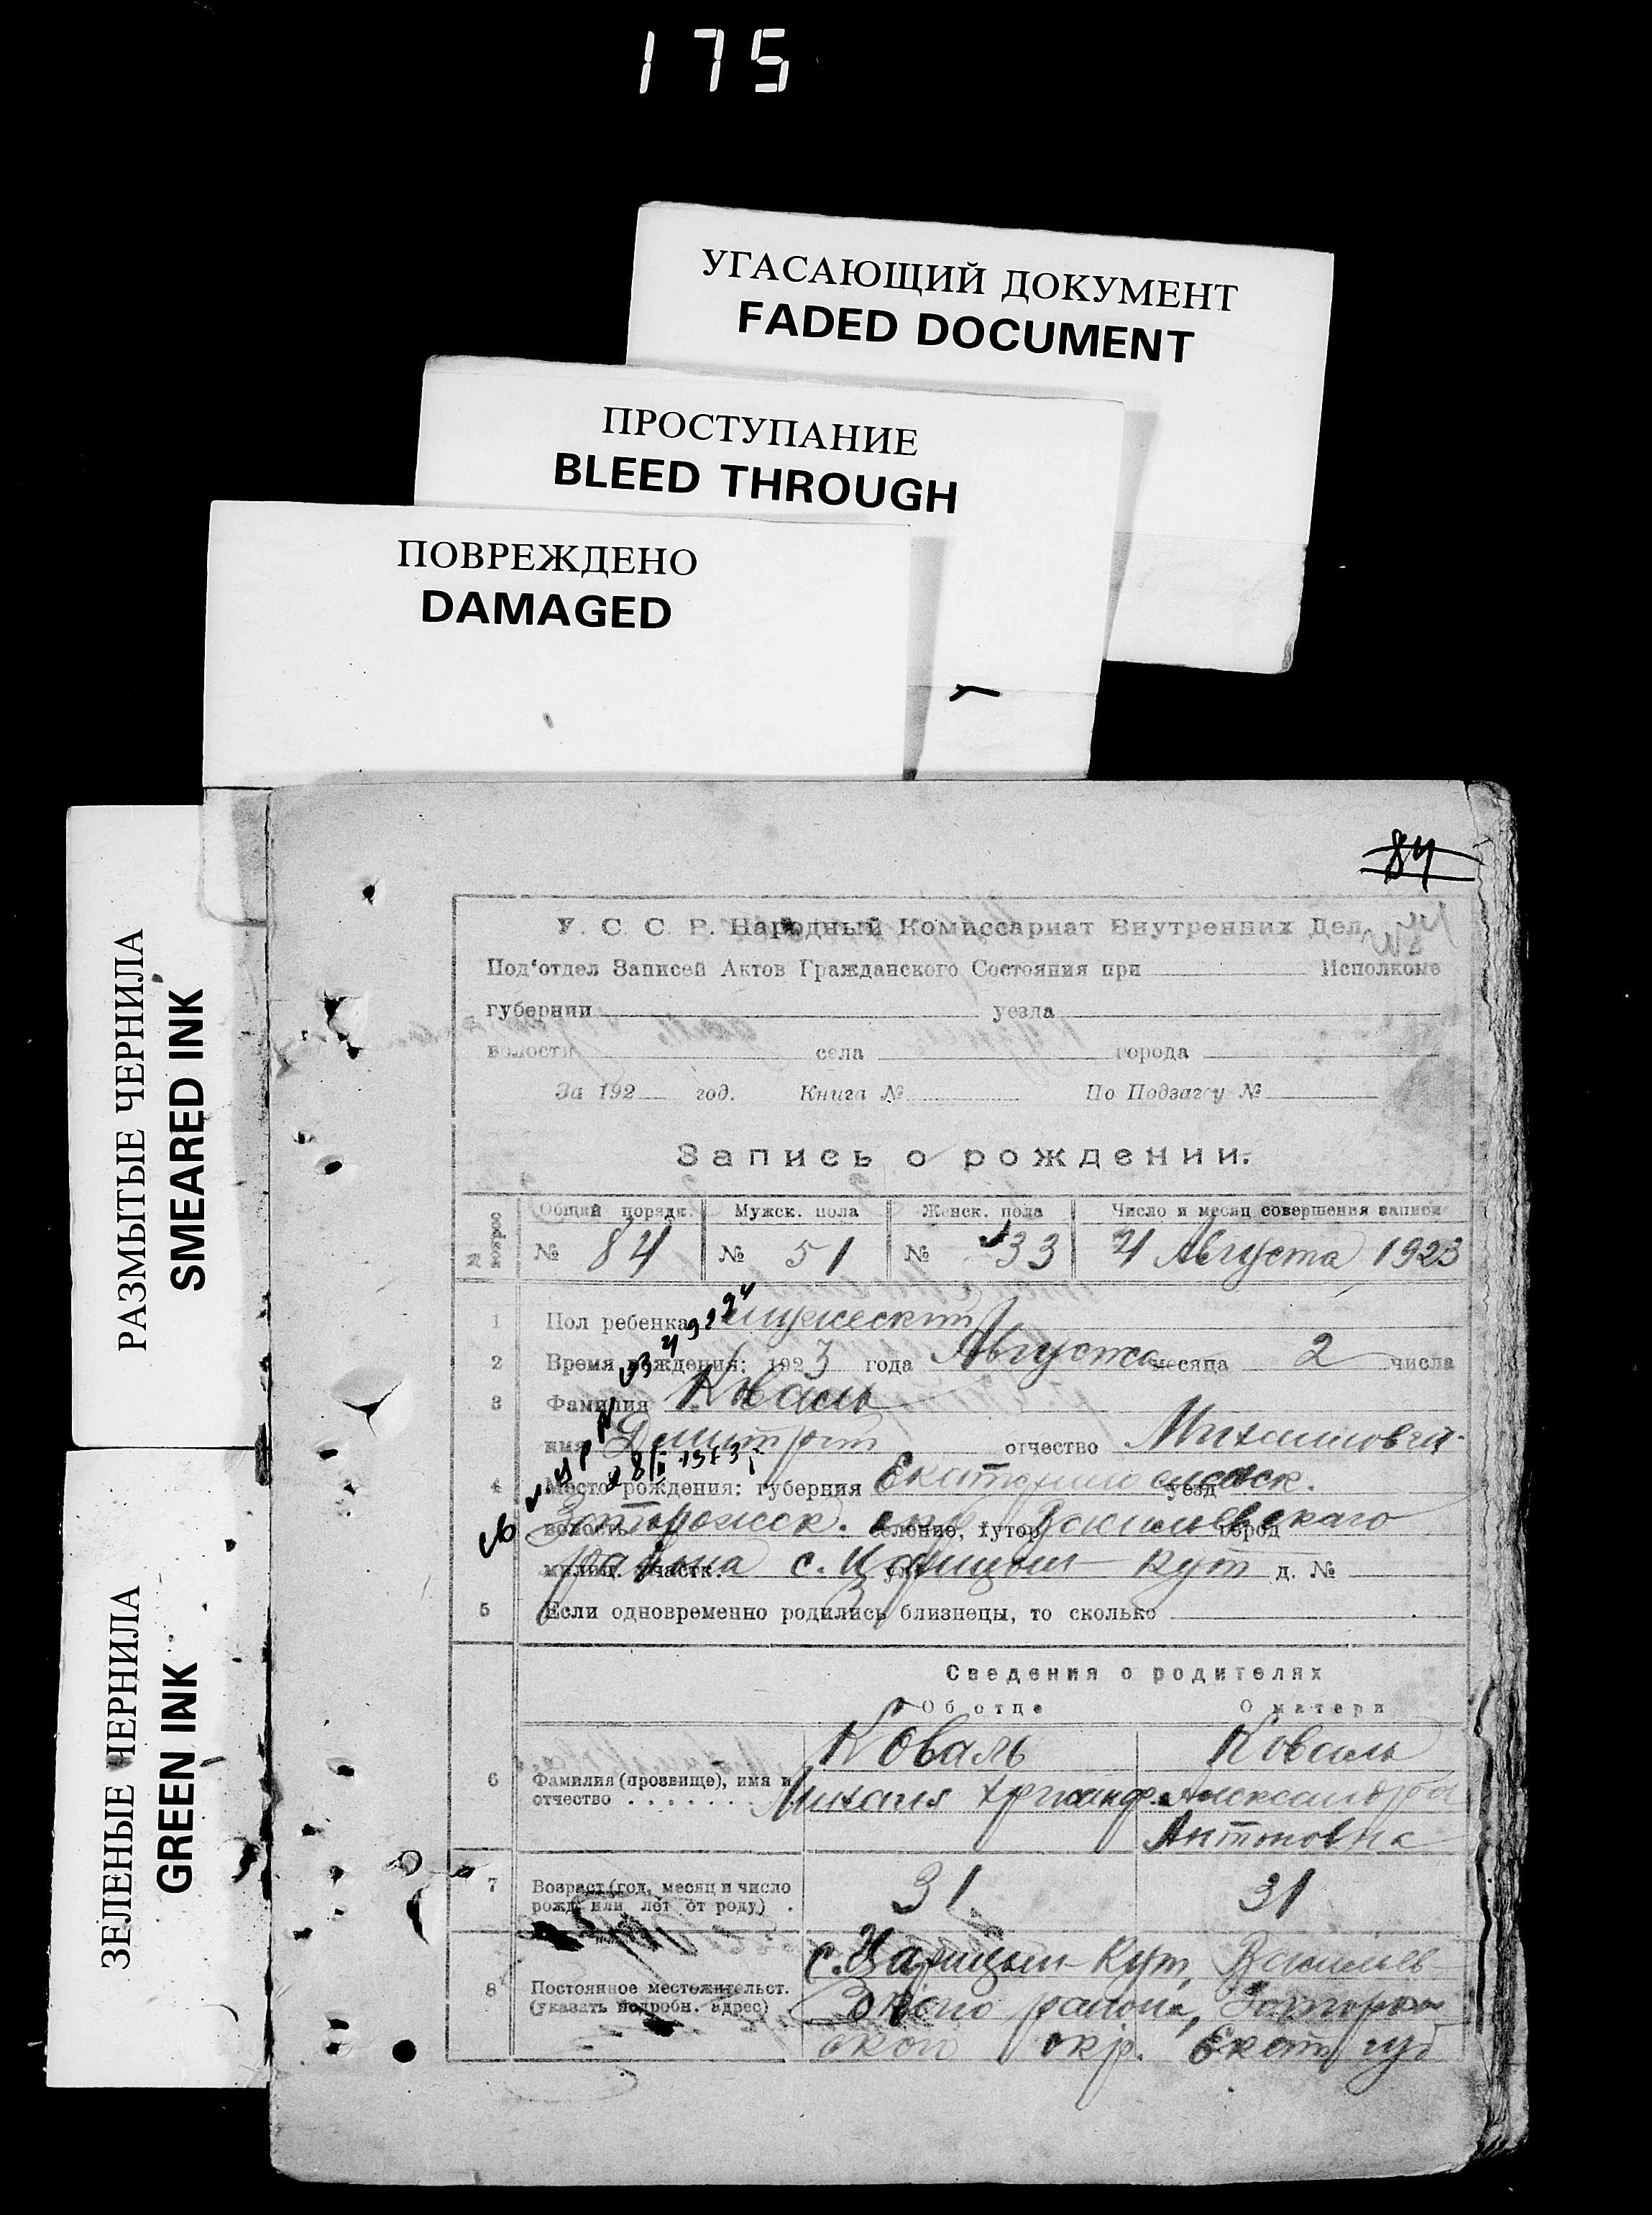 175
УГАСАЮЩИЙ ДОКУМЕНТ
FADED DOCUMENT
ПРОСТУПАНИЕ
BLEED THROUGH
ПОВРЕЖДЕНО
DAMAGED
РАЗМЫТЫЕ ЧЕРНИЛА
SMEARED INK
ЗЕЛЕНЫЕ ЧЕРНИЛА
GREEN INK
84
У. С. С. Р. Народный Комиссариат Внутренних Дел
Под'отдел Записей Актов Гражданского Состояния при Исполкоме
губернии уезда
волости села города
За 192 год. Книга № По Подзагсу №
Запись о рождении.
№ вопрос Общий порядк. Мужск. пола Женск. пола Число и месяц совершения записи
№ 84 № 51 № 33 4 Августа 1923
1 Пол ребенка мужеский
2 Время рождения: 1923 года Августа месяца 2 числа
3 Фамилия Коваль
имя Димитрий отчество Михайлович
4 Место рождения: губерния Екатеринославск. уезд
волость Запорожск. окр. селение, хутор Васильевского город
милиц. участк. района с. Царицын-Кут д. №
5 Если одновременно родились близнецы, то сколько
Сведения о родителях
Об отце О матери
Коваль Коваль
6 Фамилия (прозвище), имя и отчество . . . . . . . Михаил Александра
Антоновна
7 Возраст (год, месяц и число рожд. или лет от роду) . 31. 31
8 Постоянное местожительст. (указать подробн. адрес) с. Царицын-Кут, Васильев-
ского района, Запорож-
ской окр. Екат. губ